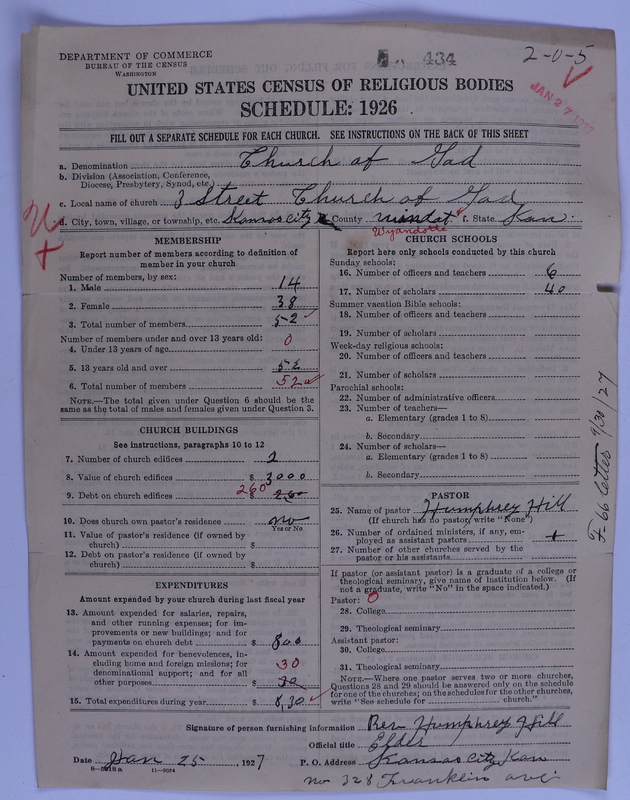 434
2-0-5
JAN 27 1927
DEPARTMENT OF COMMERCE
BUREAU OF THE CENSUS
WASHINGTON
UNITED STATES CENSUS OF RELIGIOUS BODIES
SCHEDULE: 1926
FILL OUT A SEPARATE SCHEDULE FOR EACH CHURCH. SEE INSTRUCTIONS ON THE BACK OF THIS SHEET
a. Denomination Church of God
b. Division (Association, Conference, Diocese, Presbytery, Synod, etc.)
c. Local name of church 3 Street Church of God
d. City, town, village, or township, etc. Kansas City County wiandot f. State Kan.
Wyandotte
MEMBERSHIP
Report number of members according to definition of
member in your church
Number of members, by sex:
1. Male 14
2. Female 38
3. Total number of members 52
Number of members under and over 13 years old:
4. Under 13 years of age 0
5. 13 years old and over 52
6. Total number of members 52
NOTE.—The total given under Question 6 should be
same as the total of males and females given under Question 3.
CHURCH BUILDINGS
See instructions, paragraphs 10 to 12
7. Number of church edifices 2
8. Value of church edifices $ 3000
9. Debt on church edifices 260 $ 2,60
10. Does church own pastor's residence no
Yes or No
11. Value of pastor's residence (if owned by
church) $
12. Debt on pastor's residence (if owned by
church) $
EXPENDITURES
Amount expended by your church during last fiscal year
13. Amount expended for salaries, repairs,
and other running expenses; for im-
provements or new buildings; and for
payments on church debt $ 800
14. Amount expended for benevolences, in-
cluding home and foreign missions; for
denominational support; and for all
other purposes 30 $ 30
15. Total expenditures during year $ 8,30
CHURCH SCHOOLS
Report here only schools conducted by this church
Sunday schools:
16. Number of officers and teachers 6
17. Number of scholars 40
Summer vacation Bible schools:
18. Number of officers and teachers
19. Number of scholars
Week-day religious schools:
20. Number of officers and teachers
21. Number of scholars
Parochial schools:
22. Number of administrative officers
23. Number of teachers—
a. Elementary (grades 1 to 8)
b. Secondary
24. Number of scholars—
a. Elementary (grades 1 to 8)
b. Secondary
PASTOR
25. Name of pastor Humphrey Hill
(If church has no pastor, write "None")
26. Number of ordained ministers, if any, em-
ployed as assistant pastors
27. Number of other churches served by the
pastor or his assistants
If pastor (or assistant pastor) is a graduate of a college or
theological seminary, give name of institution below. (If
not a graduate, write "No" in the space indicated.)
Pastor: 0
28. College
29. Theological seminary
Assistant pastor:
30. College
31. Theological seminary
NOTE.—Where one pastor serves two or more churches,
Questions 28 and 29 should be answered only on the schedule
for one of the churches; on the schedules for the other churches,
write "See schedule for church."
F 66 letter 9/30/27
Signature of person furnishing information Rev Humphrey Hill
Official title Elder
Date Jan 25, 1927 P. O. Address Kansas City Kan
11—9054
no 328 Franklin ave